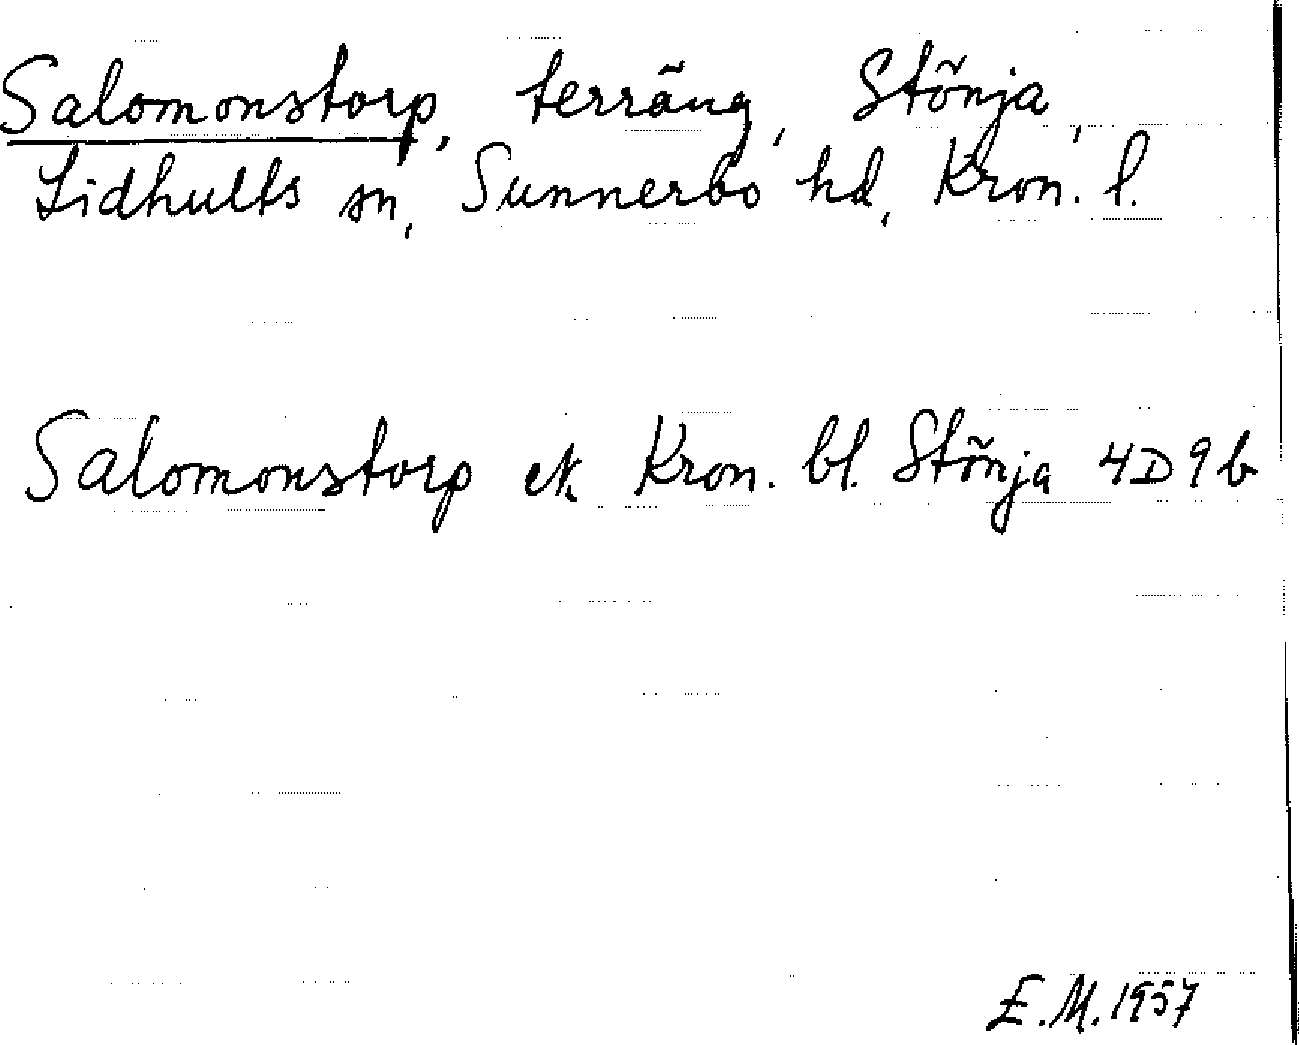 Salomonstorp, terräng, Stönja,
Lidhults sn, Sunnerbo hd, Kron. l.
Salomonstorp ek Kron. bl. Stönja 4D9b
E.M. 1957